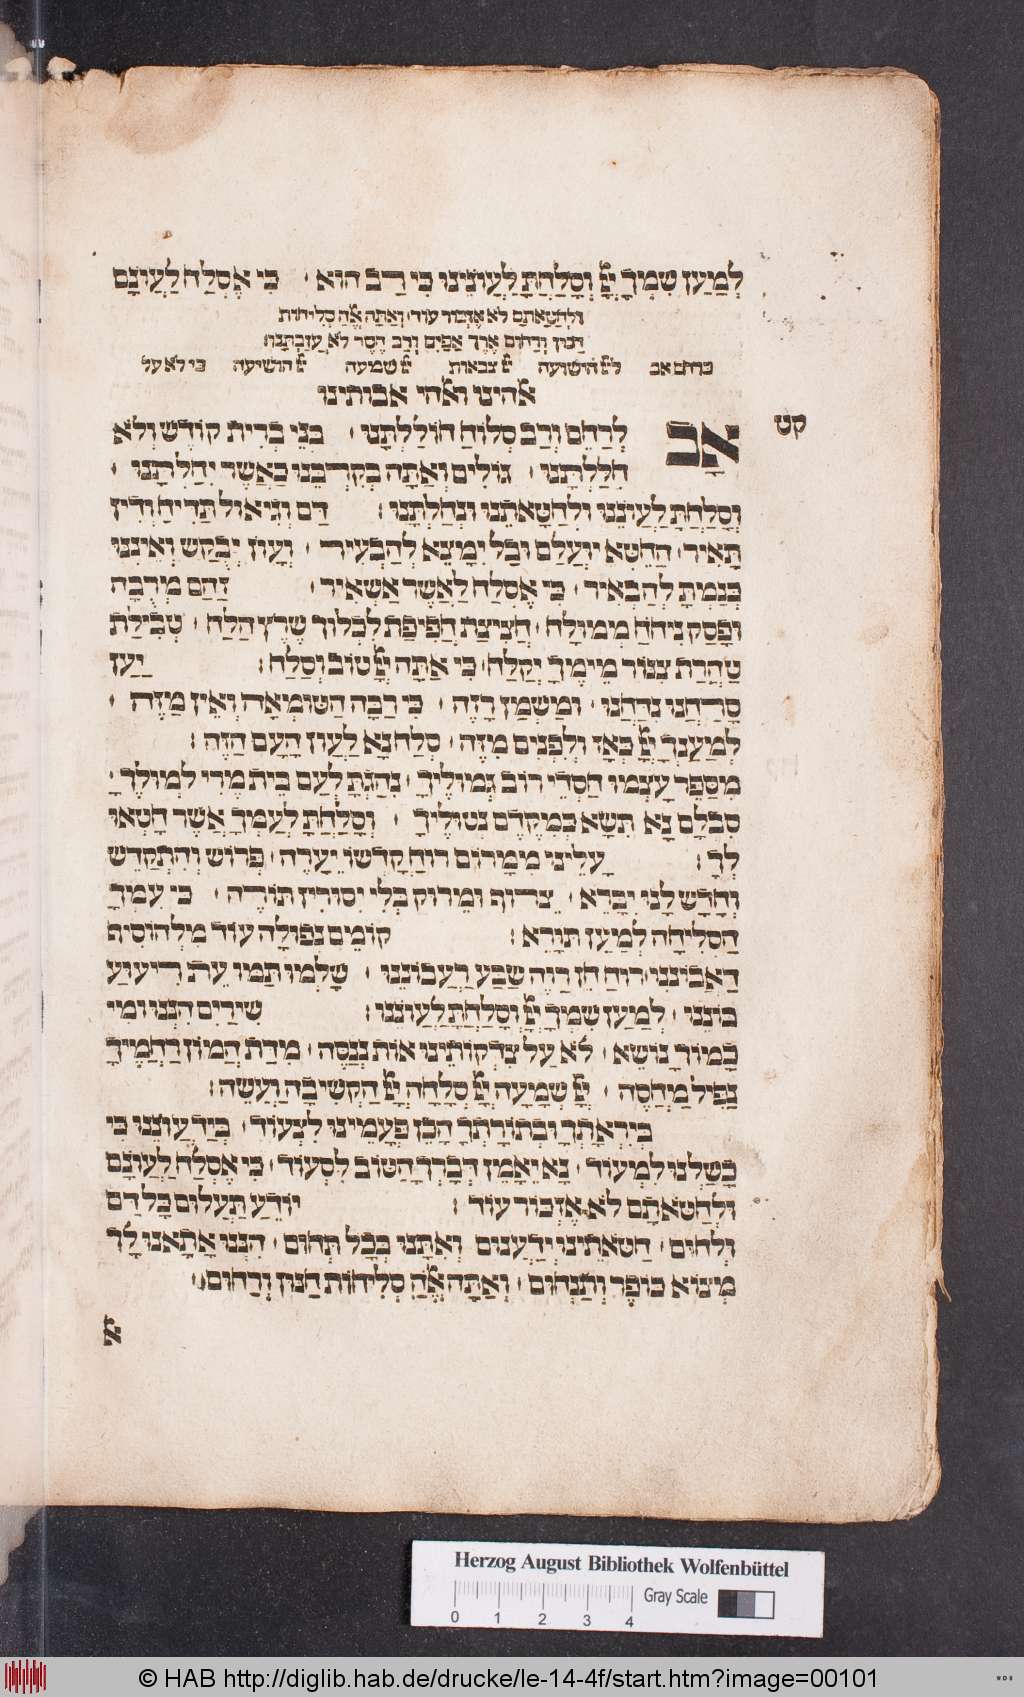 לְמַעַן שִׁמְךָ יְיָ וְסָלַחְתָּ לַעֲוֹנֵינוּ כִּי רַב הוּא כִּי אֶסְלַח לַעֲוֹנָם
ולחטאתם לא אזכור עוד ואתה אלוה סליחות
חנון ורחום ארך אפים ורב חסד ולא עזבתנו
כרחם אב ליי הישועה יי צבאות יי שמעה יי הושיעה כי לא על
אלהינו ואלהי אבותינו
קט
אָב לְרַחֵם וְרַב סְלוֹחַ חוֹלַלְתָּנוּ בְּנֵי בְּרִית קוֹדֶשׁ וְלֹא
חִלַּלְתָּנוּ גּוֹלִים וְאַתָּה בְקִרְבֵּנוּ כַּאֲשֶׁר יִחַלְתָּנוּ
וְסָלַחְתָּ לַעֲוֹנֵנוּ וּלְחַטָּאתֵנוּ וּנְחַלְתָּנוּ דַּם וְגִיאוּל תַּדִּיחַ וְדִין
תָּאִיר הַחֵטְא יוּעְלַם וּבַל יִמָּצֵא לְהַבְעִיר וְעָוֹן יְבֻקַּשׁ וְאֵינֶנּוּ
בְּנַמְתָּ לְהַבְאִיר כִּי אֶסְלַח לַאֲשֶׁר אַשְׁאִיר זֹהַם מְרֻבָּה
וּפָסַק נִיחֹחַ מִמּוּלָח חֲצִיצַת חֲפִיפַת לִכְלוּךְ שֶׁרֶץ הַלַּח טְבִילַת
טַהֲרַת צִנּוֹר מֵימֶיךָ יְקַלַּח כִּי אַתָּה יְיָ טוֹב וְסַלָּח יַעַן
סָרַחְנוּ נִדַּחְנוּ וּמִשְׁמַן רָזֶה כִּי רַבָּה הַטּוּמְאָה וְאֵין מַזֶּה
לְמַעַנְךָ יְיָ כְּאָז וְלִפְנִים מִזֶּה סְלַח נָא לַעֲוֹן הָעָם הַזֶּה
מִסַּפֵּר עָצְמוּ חַסְדֵי רוֹב גְּמוּלֶיךָ נְהַגְתָּ לְעַם בֵּית מְרִי לְמוּלֶךָ
סִבְלָם נָא תִּשָּׂא כְּמִקֶּדֶם נְטוּלֶיךָ וְסָלַחְתָּ לְעַמְּךָ אֲשֶׁר חָטְאוּ
לָךְ עָלֵינוּ מִמָּרוֹם רוּחַ קָדְשׁוֹ יֵעָרֶה פְּרוֹשׁ וְהִתְקַדֵּשׁ
וְחָדָשׁ לָנוּ יִבָּרֵא צֵרוּף וּמֵרוּק בְּלִי יִסּוּרִין תּוֹרֶה כִּי עִמְּךָ
הַסְּלִיחָה לְמַעַן תִּוָּרֵא קוֹמֵם נְפוּלָה עוֹד מִלְּהוֹסִיף
דַאֲבוֹנֵנוּ רִיחַ חֵן רַוֵּה שַׂבַּע רַעֲבוֹנֵנוּ שָׁלְמוּ תַּמּוּ עֵת
כּוֹנֵנִי לְמַעַן שִׁמְךָ יְיָ וְסָלַחְתָּ לַעֲוֹנֵנוּ שִׁירַיִם הִנְנוּ וּמִי
כָּמוֹךָ נוֹשֵׂא לֹא עַל צִדְקוֹתֵינוּ אוֹת נְנַסֶּה מִדַּת הֲמוֹן רַחֲמֶיךָ
נַפִּיל מַחֲסֶה יְיָ שְׁמָעָה יְיָ סְלָחָה יְיָ הַקְשִׁיבָה וַעֲשֵׂה
בְּיִרְאָתְךָ וּבְתוֹרָתְךָ הָכֵן פְּעָמֵינוּ לִצְעוֹד בְּיַד עֲוֹנֵנוּ כִּי
כָּשַׁלְנוּ לִמְעוֹד נָא יֵאָמֵן דְּבָרְךָ הַטּוֹב לִסְעוֹד כִּי אֶסְלַח לַעֲוֹנָם
וּלְחַטֹּאתָם לֹא אֶזְכּוֹר עוֹד יוֹדֵעַ תַּעֲלוּם כָּל דַּם
וְלַחוּם חַטֹּאתֵינוּ יְדַעֲנוּם וְאִתָּנוּ בְּכָל תְּחוּם הִנְנוּ אָתָאנוּ לָךְ
מְצוֹא כּוֹפֶר וְתַנְחוּם וְאַתָּה אֱלוֹהַּ סְלִיחוֹת חַנּוּן וְרַחוּם
א
Herzog August Bibliothek Wolfenbüttel
0 1 2 3 4 Gray Scale
© HAB http://diglib.hab.de/drucke/le-14-4f/start.htm?image=00101